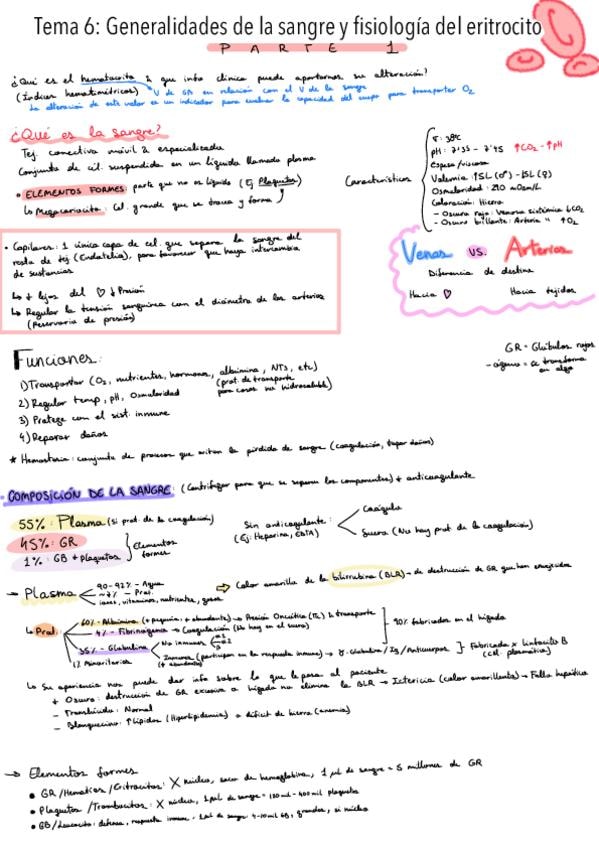 Tema 6: Generalidades de la sangre y fisiología del eritrocito
PARTE 1
¿Qué es el hematocrito & que info clínica puede aportarnos su alteración?
(Índices hematimétricos) V de GR en relación con el V de la sangre
La alteración de este valor es un indicador para evaluar la capacidad del cuerpo para transportar O2
¿Qué es la sangre?
Tej. conectivo móvil & especializado
Conjunto de cél. suspendida en un líquido llamado plasma
• ELEMENTOS FORMES: parte que no es líquida (Ej Plaquetas)
↳ Megacariocito: Cél. grande que se trocea y forma
Características
T: 38ºC
pH: 7'35 - 7'45 ↑CO2 - ↑pH
Espesa/viscosa
Valemia: ↑5L (♂) - ↓5L (♀)
Osmolaridad: 290 mOsm/L
Coloración: Hierro
- Oscuro rojo: Venosa sistémica ↓CO2
- Oscuro brillante: Arteria " ↑O2
• Capilares: 1 única capa de cel. que separa la sangre del
resto de tej (Endotelio), para favorecer que haya intercambio
de sustancias
↳ + lejos del ♡ ↓Presión
↳ Regular la tensión sanguínea con el diámetro de las arterias
(Reservorio de presión)
Venas VS. Arterias
Diferencia de destino
Hacia ♡ Hacia tejidos
GR = Glóbulos rojos
- se transforma
en algo
Funciones:
1) Transportar (O2, nutrientes, hormonas, albúmina, NTs, etc)
(prot. de transporte
para cosas no hidrosoluble)
2) Regular temp, pH, Osmolaridad
3) Protege con el sist. inmune
4) Reparar daños
* Hemostasia: conjunto de procesos que evitan la pérdida de sangre (coagulación, tapar daños)
COMPOSICIÓN DE LA SANGRE: (Centrifugar para que se separen los componentes) + anticoagulante
55%: Plasma (si prot. de la coagulación)
45%: GR
1%: GB + plaquetas
Elementos
formes
Sin anticoagulante:
(Ej: Heparina, EDTA)
Coágulo
Suero (No hay prot. de la coagulación)
→ Plasma
90-92% - Agua
7-8% - Prot.
iones, vitaminas, nutrientes, gases
⇨ Color amarillo de la bilirrubina (BLR) → de destrucción de GR que han envejecidos
↳ Prot.
60% - Albúmina (+ pequeña, + abundante) → Presión Oncótica (π), & transporte
4% - Fibrinógeno → Coagulación (No hay en el suero)
35% - Globulina
No inmunes
Inmunes (participan en la respuesta inmune) → γ-Globulina / Ig / Anticuerpos
(+ abundante)
1% Minoritarias
90% fabricadas en el hígado
Fabricada x linfocito B
(cél. plasmática)
↳ Su apariencia nos puede dar info sobre lo que le pasa al paciente
+ Oscuro: destrucción de GR excesiva o hígado no elimina la BLR → Ictericia (color amarillento) → Fallo hepático
- Translúcido: Normal
- Blanquecino: ↑lípidos (Hiperlipidemia) o déficit de hierro (anemia)
→ Elementos formes
• GR / Hematíes / Eritrocitos: X núcleo, saco de hemoglobina, 1 µl de sangre = 5 millones de GR
• Plaquetas / Trombocitos: X núcleo, 1 µl de sangre = 150 mil - 400 mil plaquetas
• GB / Leucocito: defensa, respuesta inmune. 1 µl de sangre 4-10 mil GB, grandes, sí núcleo